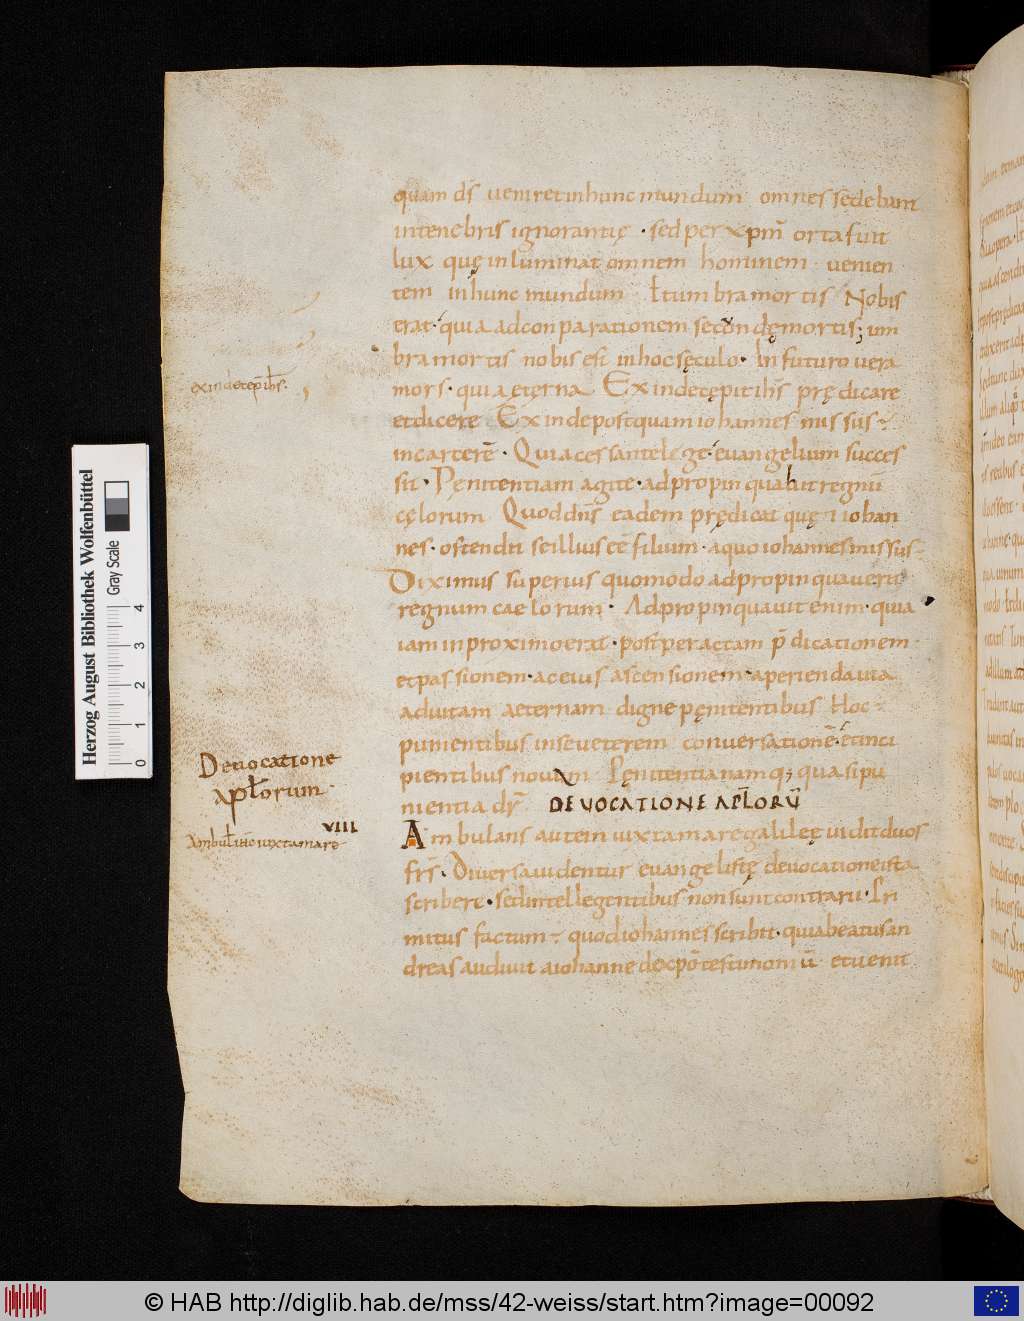 quam ds̄ veniret in hunc mundum omnes sedebant
in tenebris ignorantię · sed per xpm̄ orta fuit
lux quę inluminat omnem hominem · venien
tem in hunc mundum · Et umbra mortis Nobis
erat · quia ad conparationem secundę mortis; um
bra mortis nobis est in hoc sęculo · In futuro vera
mors · quia eterna Exinde cępit ih̄s prędicare
et dicere Exinde postquam iohannes missus
in carcerē · Quia cessante lege · euangelium succes
sit · Penitentiam agite · adpropinquabit regnū
cęlorum Quod dn̄s eadem prędicat quę & iohan
nes · ostendit se illius eē filium · a quo iohannes missus
Diximus superius quomodo adpropinquaverit
regnum caelorum · Adpropinquavit enim · quia
iam in proximo erat · post peractam p̄dicationem ·
et passionem · ac eius ascensionem · aperienda via
ad vitam aeternam digne pęnitentibus Hoc
punientibus in se veterem conversationē · et inci
pientibus novam Pęnitentia namq; quasi pu
nientia dr̄ DE VOCATIONE APL̄ORŪ
Ambulans autem iuxta mare galileę vidit duos
frs̄ · Diversa videntur evangelistę de vocatione ista
scribere · sed intellegentibus non sunt contraria · Pri
mitus factum quod iohannes scribit · quia beatus an
dreas audivit a iohanne de xpō testimoniū et venit
exinde cępit ih̄s.
De uocatione
apl̄orum
VIII
Ambul iuxta mare
Herzog August Bibliothek Wolfenbüttel
Gray Scale
0 1 2 3 4
© HAB http://diglib.hab.de/mss/42-weiss/start.htm?image=00092